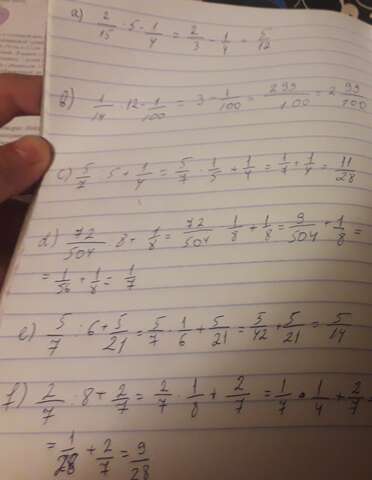 a) 2/15 · 5 - 1/4 = 2/3 - 1/4 = 5/12
b) 1/14 · 12 - 1/100 = 3 - 1/100 = 299/100 = 2 99/100
c) 5/7 : 5 + 1/4 = 5/7 · 1/5 + 1/4 = 1/7 + 1/4 = 11/28
d) 72/504 : 8 + 1/8 = 72/504 · 1/8 + 1/8 = 9/504 + 1/8 =
= 1/56 + 1/8 = 1/7
e) 5/7 : 6 + 5/21 = 5/7 · 1/6 + 5/21 = 5/42 + 5/21 = 5/14
f) 2/7 : 8 + 2/7 = 2/7 · 1/8 + 2/7 = 1/7 · 1/4 + 2/7
= 1/28 + 2/7 = 9/28